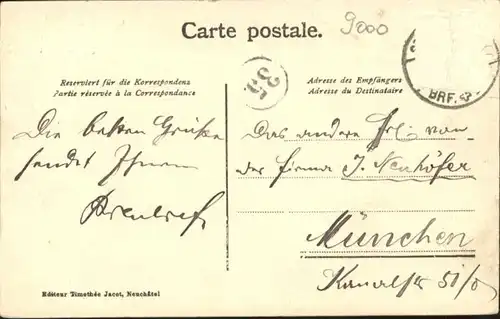 Carte postale.
9000
35
BRF.
Reserviert für die Korrespondenz
Partie réservée à la Correspondance
Adresse des Empfängers
Adresse du Destinataire
Die besten Grüße
sendet Ihnen
Das andere Frl. von
der Firma J. Neuhöfer
München
Kanalstr 51/0
Editeur Timothée Jacot, Neuchâtel